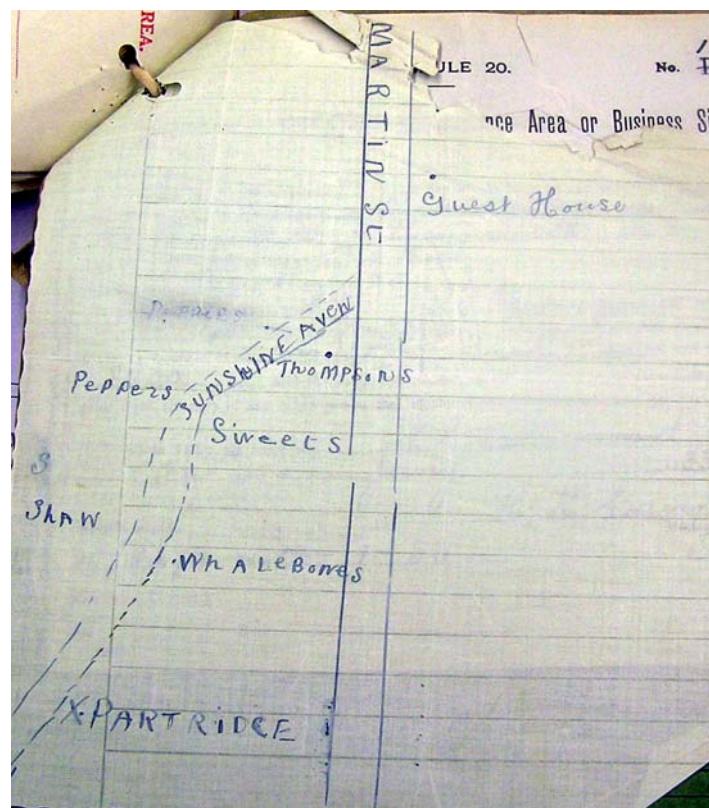 REA.
ULE 20.
No.
nce Area or Business Si
MARTIN St
Guest House
SUNSHINE AVEN
Thompsons
Peppers
Sweets
S
SHAW
WhALeBones
X PARTRIDGE